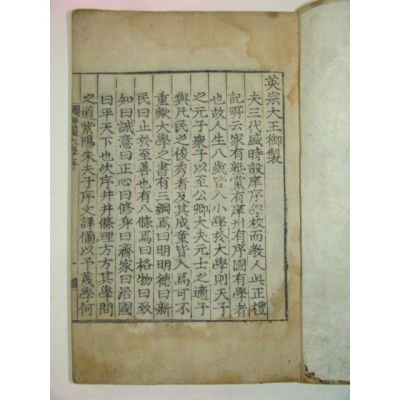 英宗大王御製
夫三代盛時設庠序學校而教人此正禮
記所云家有塾黨有庠州有序國有學者
也故人生八歲皆入小學扵大學則天子
之元子衆子以至公卿大夫元士之適子
與凡民之俊秀者及其成童皆入焉可不
重歟大學之書有三綱焉曰明明德曰新
民曰止扵至善也有八條焉曰格物曰致
知曰誠意曰正心曰修身曰齊家曰治國
曰平天下也次序井井條理方方其學問
之道紫陽朱夫子序文詳備以予蔑學何
大學序